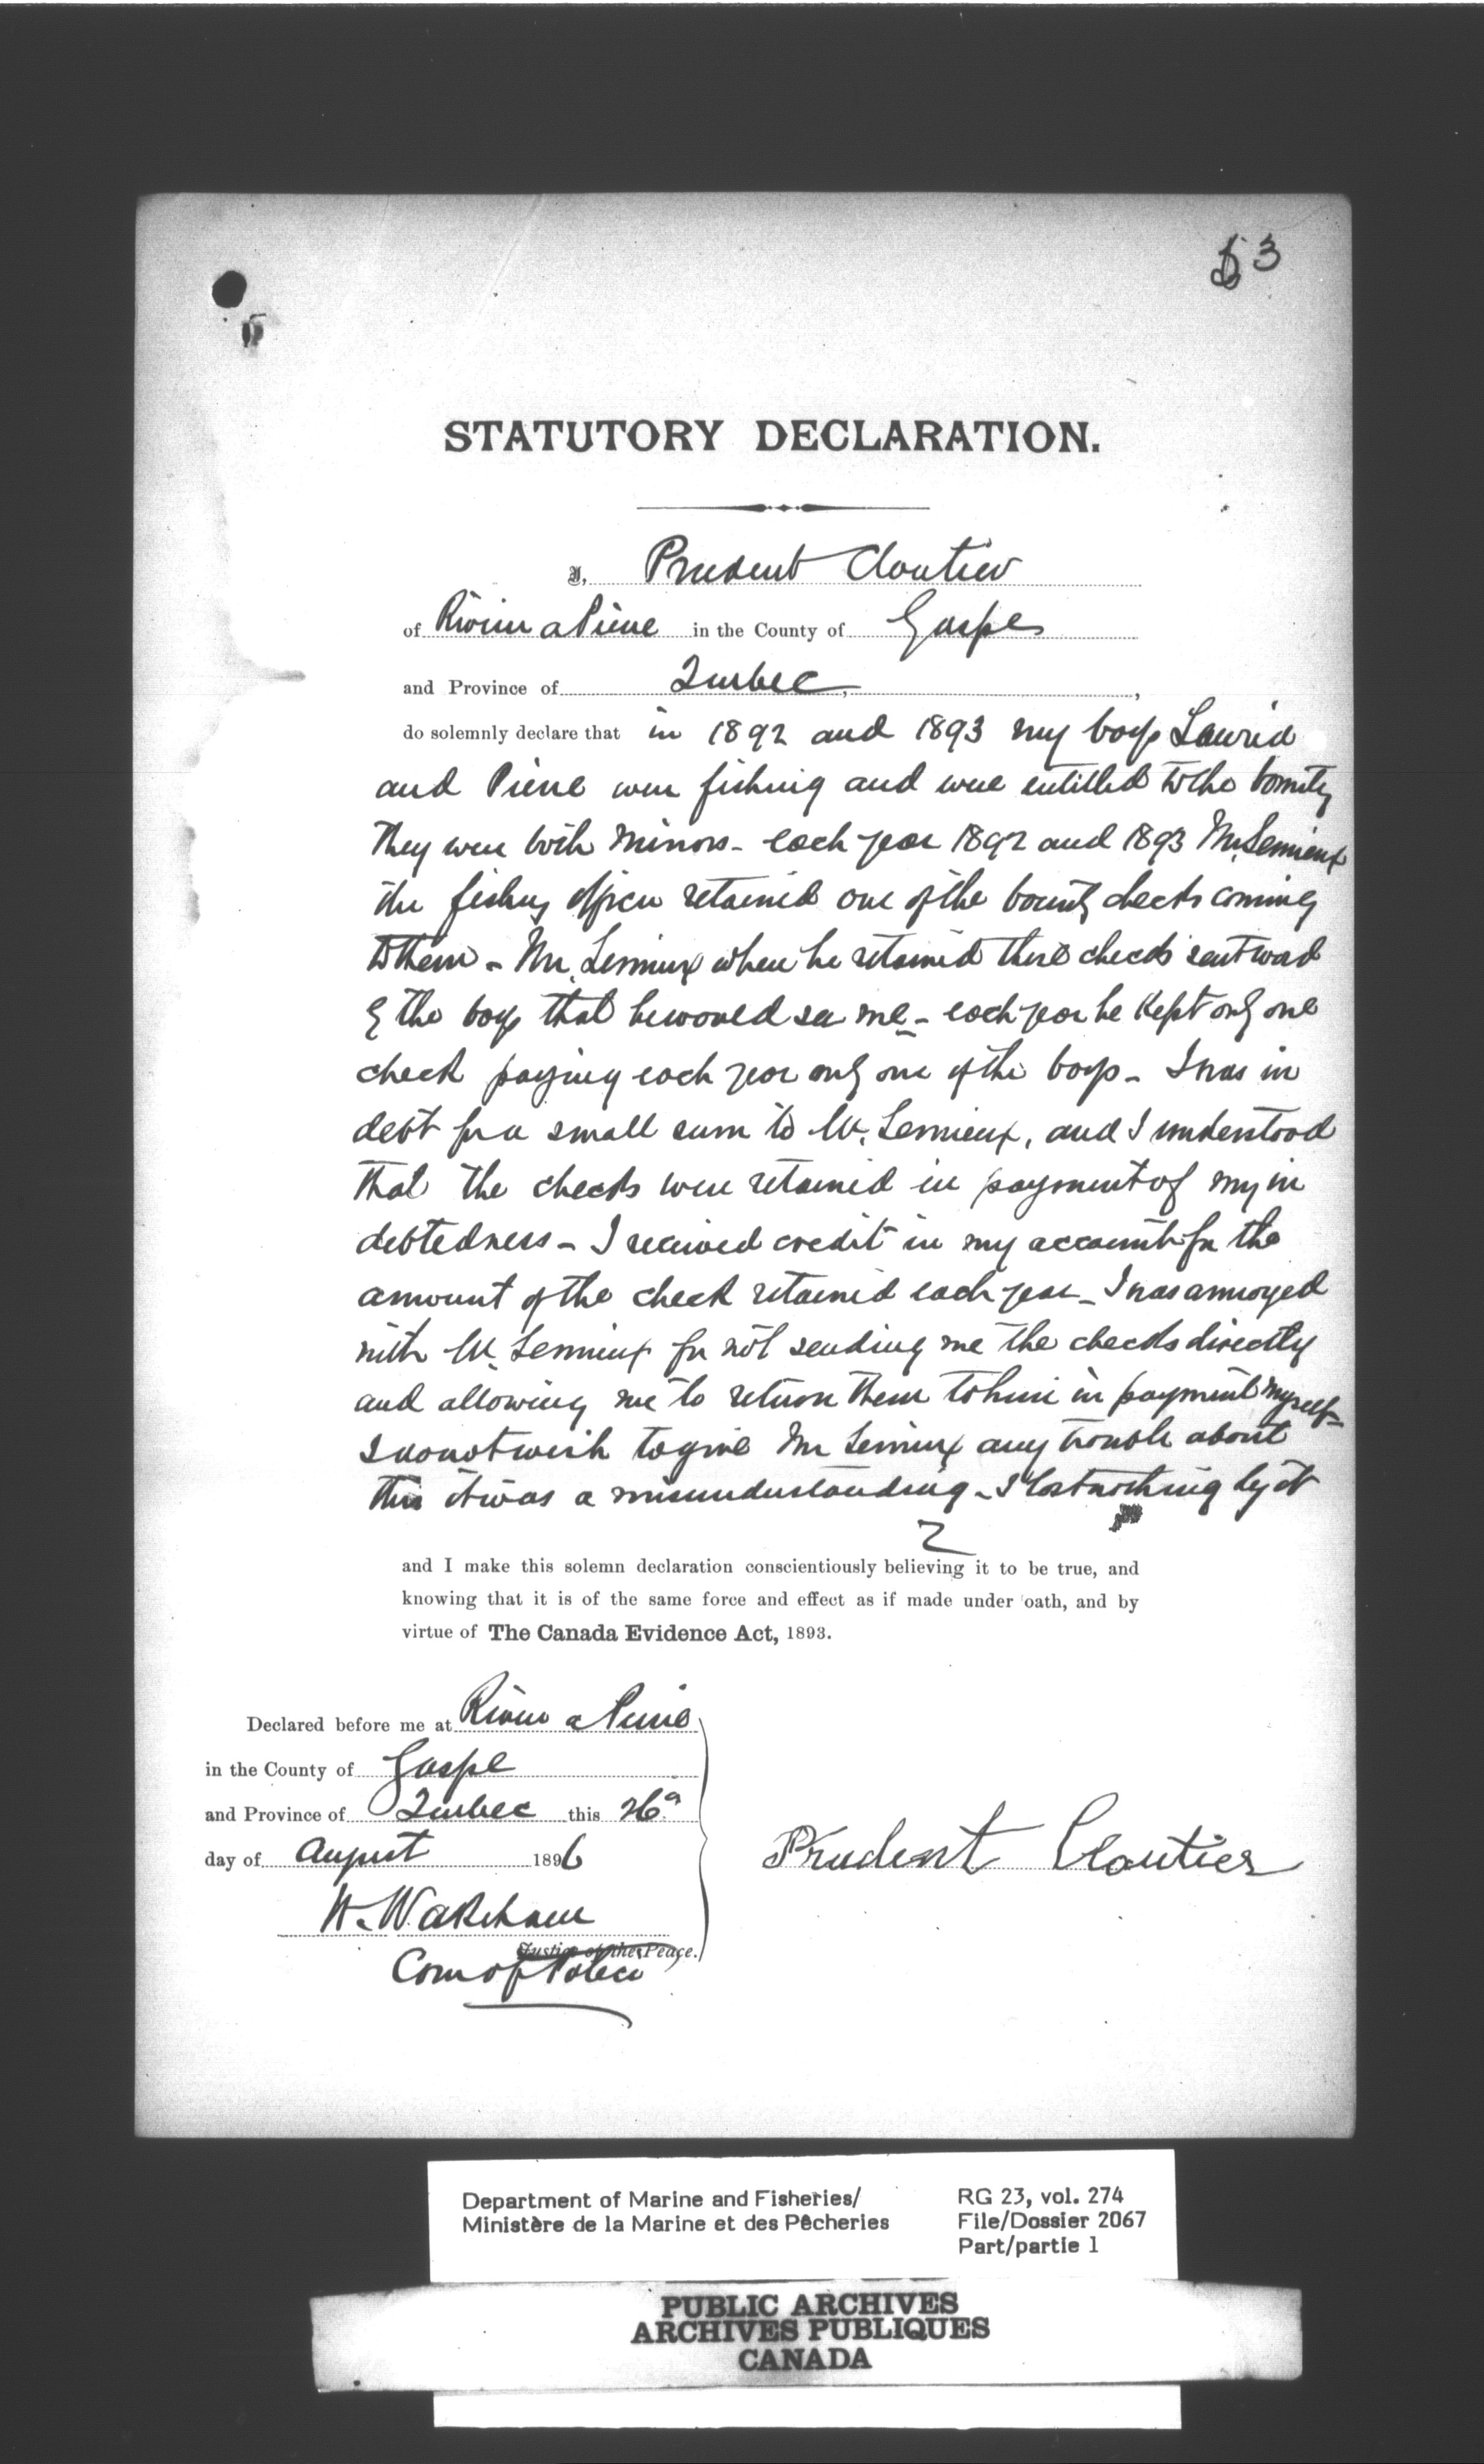 3
STATUTORY DECLARATION.
I, Prudent Cloutier
of Rivier a Pierre in the County of Gaspe
and Province of Quebec,
do solemnly declare that in 1892 and 1893 my boys
and Pierre were fishing and were entitled to the bounty
They were both minors - each year 1892 and 1893 Mr. Lemieux
the fishery officer retained one of the bounty checks coming
to them - Mr. Lemieux when he retained these checks sent word
by the boys that he would see me - each year he kept only one
check paying each year only one of the boys - I was in
debt for a small sum to Mr. Lemieux, and I understood
that the checks were retained in payment of my in
debtedness - I received credit in my account for the
amount of the check retained each year - I was annoyed
with Mr. Lemieux for not sending me the checks directly
and allowing me to return them to him in payment myself -
I do not wish to give Mr Lemieux any trouble about
this it was a misunderstanding - I lost nothing by it
and I make this solemn declaration conscientiously believing it to be true, and
knowing that it is of the same force and effect as if made under oath, and by
virtue of The Canada Evidence Act, 1893.
Declared before me at Rivier a Pierre
in the County of Gaspe
and Province of Quebec this 26th
day of August 1896
Prudent Cloutier
W. Wakeham
Justice of the Peace.
Com of Police
Department of Marine and Fisheries/
Ministère de la Marine et des Pêcheries
RG 23, vol. 274
File/Dossier 2067
Part/partie 1
PUBLIC ARCHIVES
ARCHIVES PUBLIQUES
CANADA